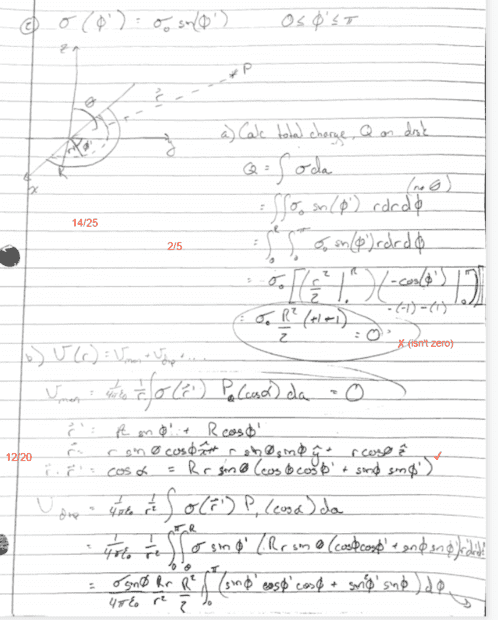 c) σ(φ') = σ₀ sin(φ') 0 ≤ φ' ≤ π
z
θ
r⃗
P
φ'
R
y
x
a) Calc total charge, Q on disk
Q = ∫ σ da
(no θ)
= ∬ σ₀ sin(φ') r dr dφ
= ∫₀ᴿ ∫₀^π σ₀ sin(φ') r dr dφ
14/25
2/5
= σ₀ [(r²/2 |₀ᴿ)(-cos(φ') |₀^π)]
-(-1) -(1)
= σ₀ R²/2 (+1 -1) = 0
X (isn't zero)
b) V(r) = V_mon + V_dip + ...
V_mon = 1/4πε₀ 1/r ∫ σ(r⃗') P₀(cosα) da = 0
r⃗' = R sin φ' + R cos φ'
r⃗ = r sin θ cos φ x̂ + r sin θ sin φ ŷ + r cos θ ẑ
12/20
r⃗·r⃗' = cos α = R r sin θ (cos φ cos φ' + sin φ sin φ') ✓
V_dip = 1/4πε₀ 1/r² ∫ σ(r⃗') P₁(cosα) da
= 1/4πε₀ 1/r² ∫₀^π ∫₀ᴿ σ sin φ' (R r sin θ (cos φ cos φ' + sin φ sin φ') r dr dφ
= σ sin θ/4πε₀ Rr/r² R²/2 ∫₀^π (sin φ' cos φ' cos φ + sin² φ' sin φ) dφ